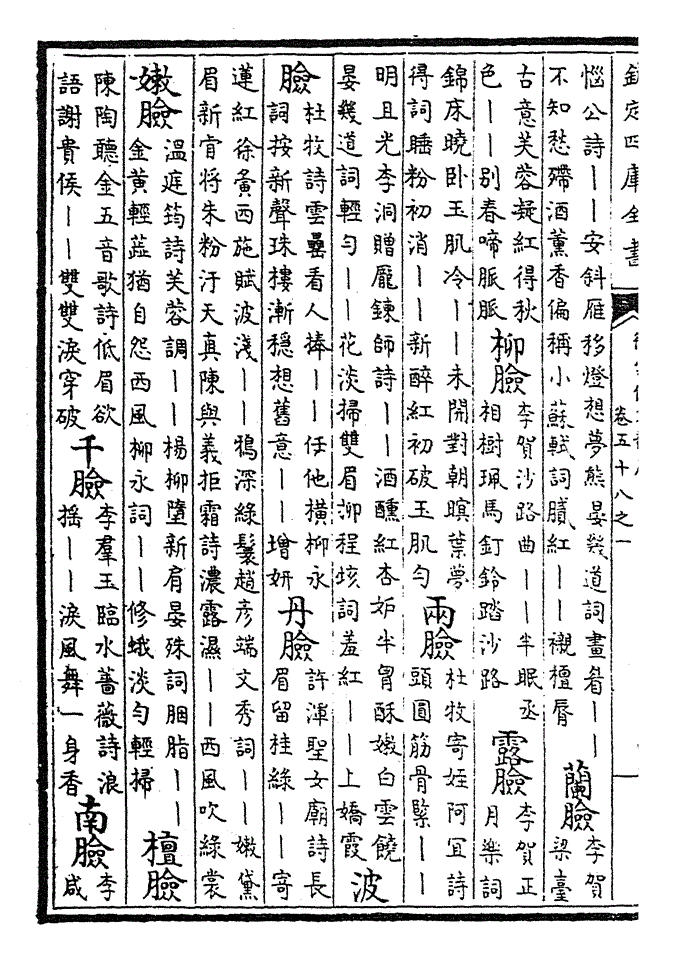 欽定四庫全書
卷五十八之一
惱公詩——安斜雁移燈想夢熊晏幾道詞畫看——
不知愁殢酒薰香偏稱小蘇軾詞膩紅——襯檀脣
蘭臉
李賀
梁臺
古意芙蓉凝紅得秋
色——別春啼脈脈
柳臉
李賀沙路曲——半眠丞
相樹珮馬釘鈴踏沙路
露臉
李賀正
月樂詞
錦床曉卧玉肌冷——未開對朝暝葉夢
得詞睡粉初消——新醉紅初破玉肌勻
兩臉
杜牧寄姪阿宜詩
頭圓筋骨緊——
明且光李洞贈龐鍊師詩——酒醺紅杏妒半胷酥嫩白雲饒
晏幾道詞輕勻——花淡掃雙眉泖程垓詞羞紅——上嬌霞
波
臉
杜牧詩雲罍看人捧——任他橫柳永
詞按新聲珠樓漸穩想舊意——增妍
丹臉
許渾聖女廟詩長
眉留桂綠——寄
蓮紅徐夤西施賦波淺——鴉深綠鬟趙彥端文秀詞——嫩黛
眉新甯將朱粉汙天真陳與義拒霜詩濃露濕——西風吹綠裳
嫩臉
溫庭筠詩芙蓉調——楊柳墮新眉晏殊詞胭脂——
金黃輕蕋猶自怨西風柳永詞——修蛾淡勻輕掃
檀臉
陳陶聽金五音歌詩低眉欲
語謝貴侯——雙雙淚穿破
千臉
李羣玉臨水薔薇詩浪
搖——淚風舞一身香
南臉
李
咸